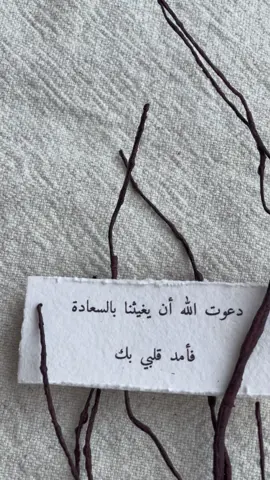 دعوت الله أن يغيثنا بالسعادة
فأمد قلبي بك